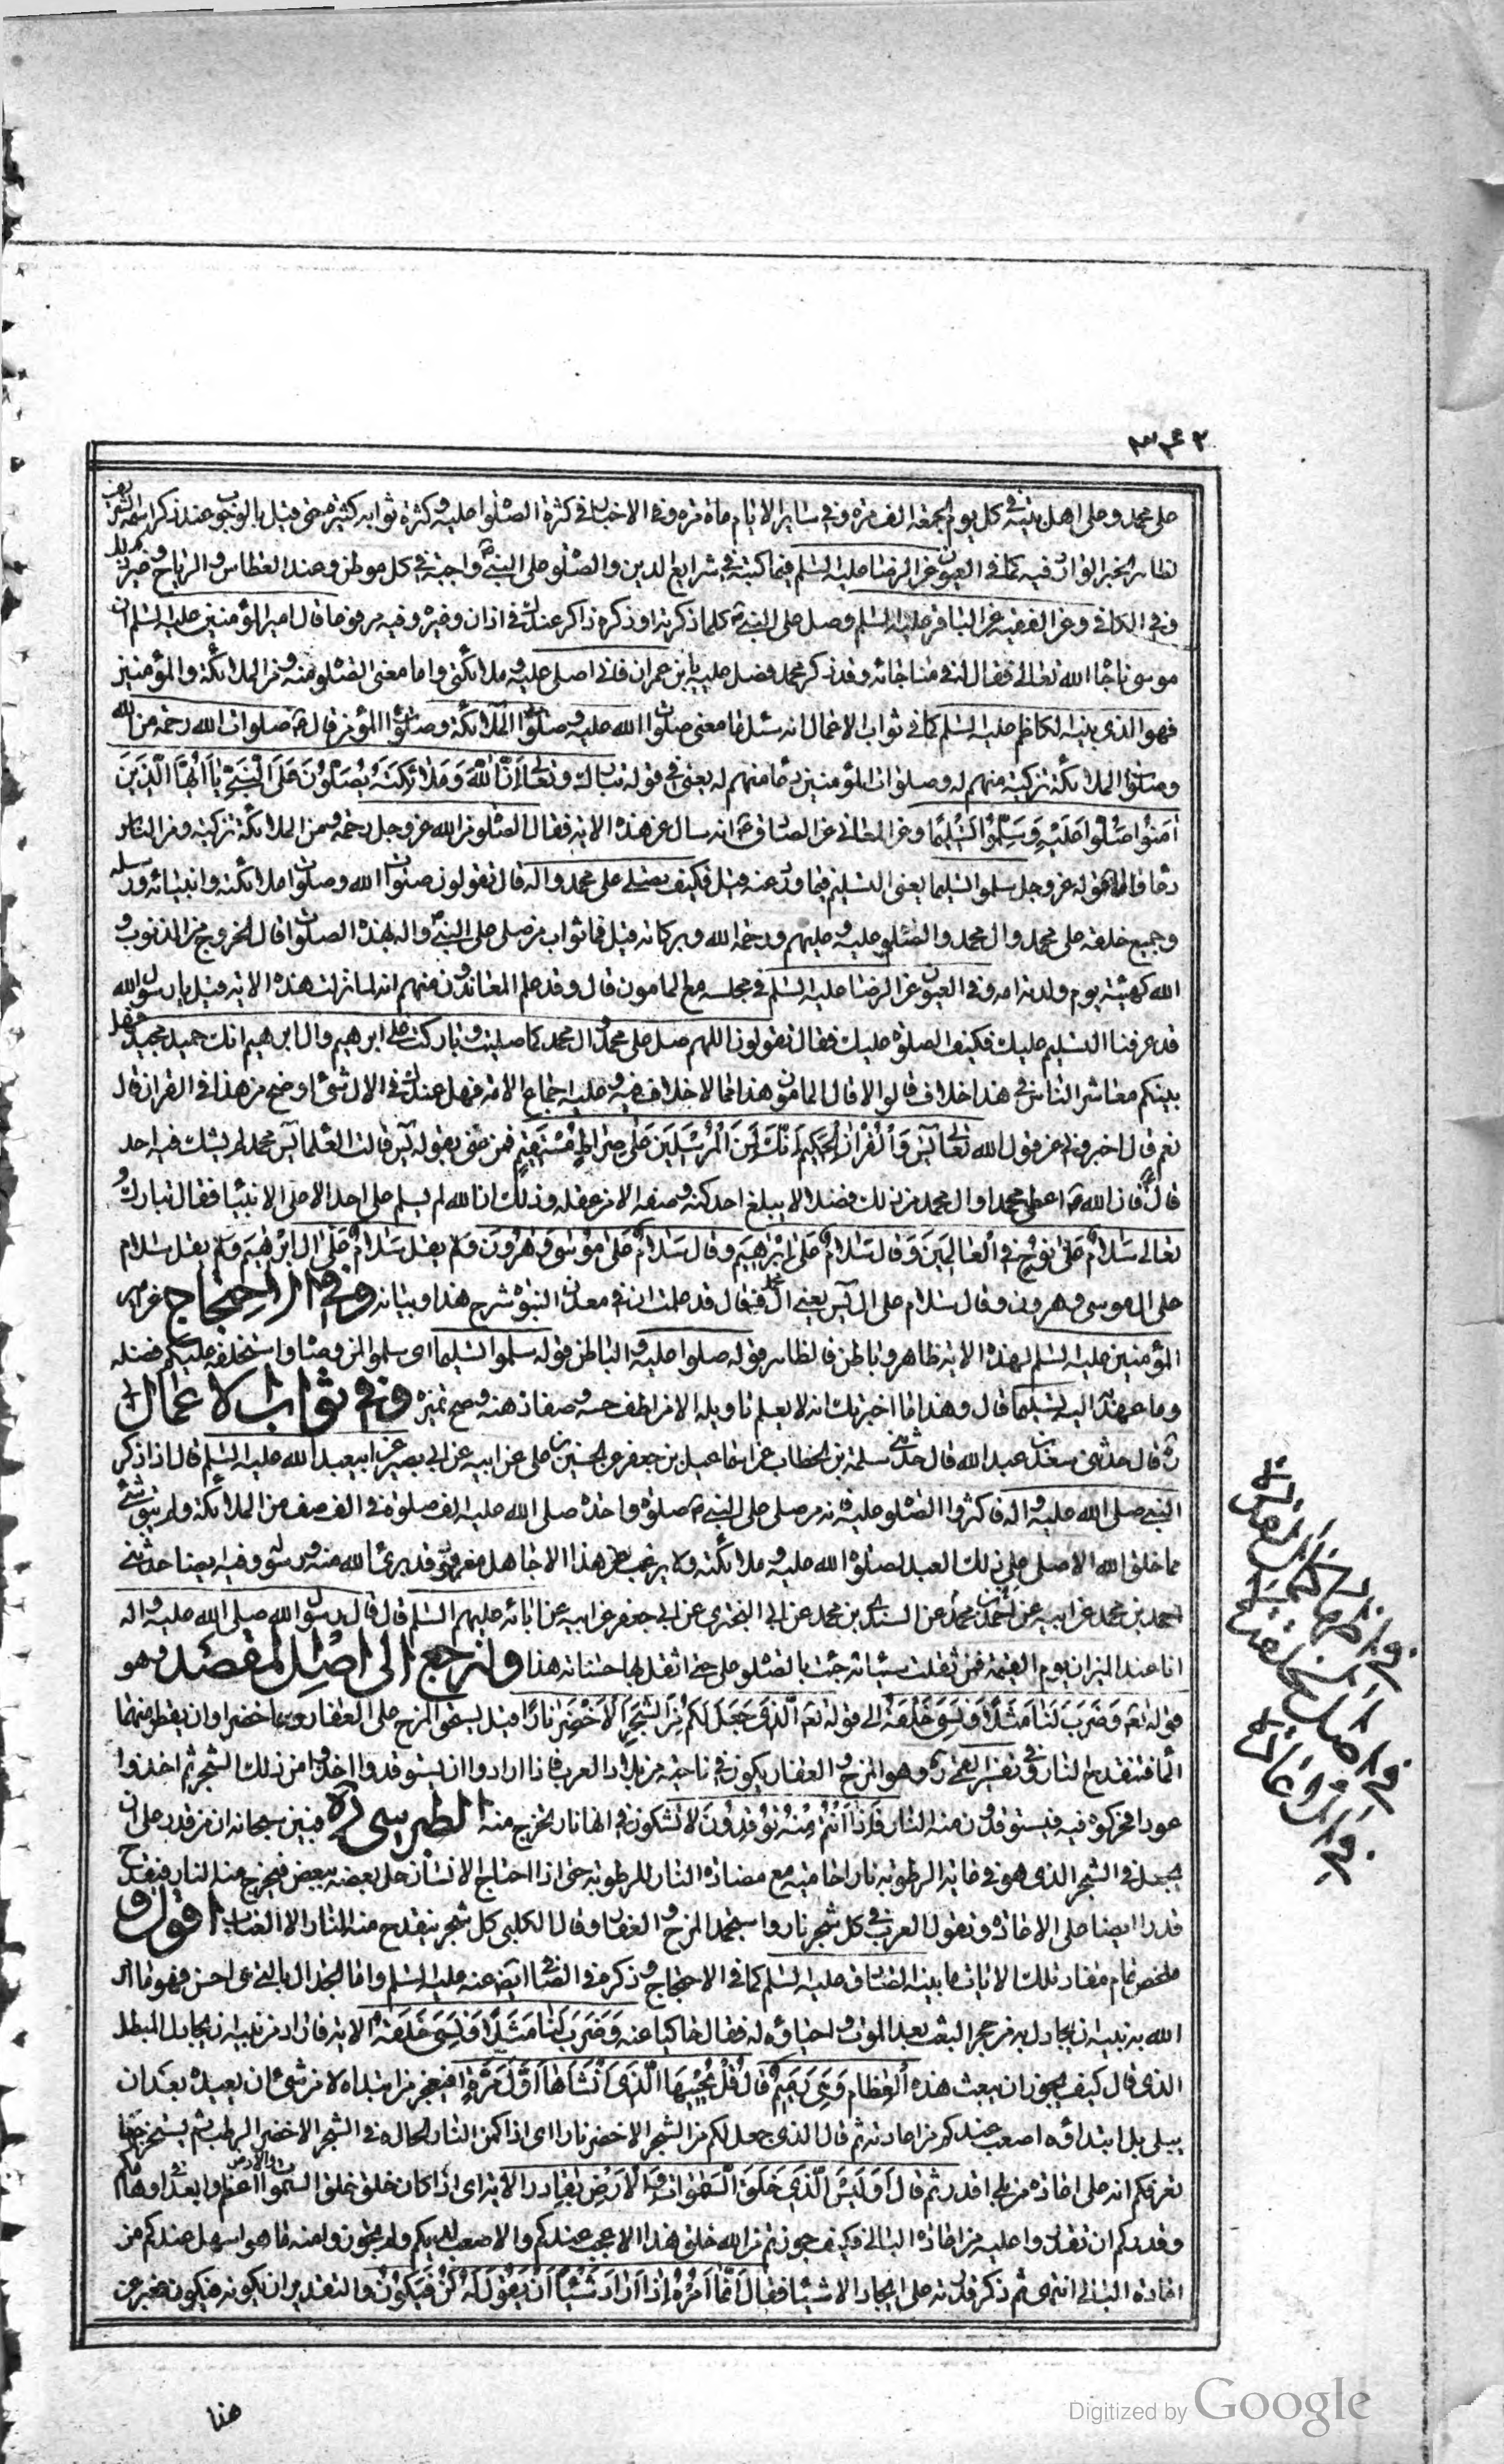 ۳۴۲
على محمد وعلى اهل بيته فى كل يوم الجمعة الف مرة وفى ساير الايام ماة مرة وفى الاخبار فى كثرة الصلوة عليه وكثرة ثوابه كثيرة حتى قيل بالوجوب عند ذكر اسمه الشريف
لظاهر الخبر الوارد فيه كما فى العيون عن الرضا عليه السلم فيما كتبه فى شرايع الدين والصلوة على النبى واجبة فى كل موطن وعند العطاس والرياح وغير ذلك
وفى الكافى وعن الفقيه عن الباقر عليه السلم وصل على النبى كلما ذكرته او ذكره ذاكر عندك فى اذان وغيره وفيه مرفوعا قال امير المؤمنين عليه السلم ان
موسى ناجاه الله تعالى فقال له فى مناجاته وقد ذكر محمد فصل عليه يابن عمران فانى اصلى عليه وملائكتى واما معنى الصلوة منه ومن الملائكة والمؤمنين
فهو الذى بينه الكاظم عليه السلم كما فى ثواب الاعمال انه سئل ما معنى صلوات الله عليه وصلوات الملائكة وصلوات المؤمن قال صلوات الله رحمة من الله
وصلوات الملائكة تزكية منهم له وصلوات المؤمنين دعا منهم له يعنى فى قوله تبارك وتعالى اِنَّ اللهَ وَمَلائِكَتَهُ يُصَلُّونَ عَلَى النَّبِىِّ يا اَيُّهَا الَّذينَ
آمَنُوا صَلُّوا عَلَيْهِ وَسَلِّمُوا تَسْليمًا وعن المعانى عن الصادق انه سال عن هذه الاية فقال الصلوة من الله عز وجل رحمة ومن الملائكة تزكية ومن الناس
دعا واما قوله عز وجل سلموا تسليما يعنى التسليم فيما ورد عنه قيل فكيف نصلى على محمد واله قال تقولون صلوات الله وصلوات ملائكته وانبيائه ورسله
وجميع خلقه على محمد وال محمد والصلوة عليه وعليهم ورحمة الله وبركاته قيل فما ثواب من صلى على النبى واله بهذه الصلوات قال الخروج من الذنوب و
الله كهيئة يوم ولدته امه وفى العيون عن الرضا عليه السلم فى مجلسه مع المامون قال وقد علم المعاندون منهم انه لما نزلت هذه الاية قيل يا رسول الله
قد عرفنا التسليم عليك فكيف الصلوة عليك فقال تقولون اللهم صل على محمد وال محمد كما صليت وباركت على ابرهيم وال ابرهيم انك حميد مجيد فهل
بينكم معاشر الناس فى هذا خلاف قالوا لا قال المامون هذا مما لا خلاف فيه وعليه اجماع الامة فهل عندك فى الال شئ اوضح من هذا فى القران قال
نعم قال اخبرونى عن قول الله تعالى يٰسۤ وَالْقُرْانِ الْحَكيمِ اِنَّكَ لَمِنَ الْمُرْسَلينَ عَلى صِراطٍ مُسْتَقيمٍ فمن عنى بقوله يس قالت العلما يس محمد لم يشك فيه احد
قال فان الله اعطى محمدا وال محمد من ذلك فضلا لا يبلغ احد كنه وصفه الا من عقله وذلك ان الله لم يسلم على احد الا على الانبيا فقال تبارك و
تعالى سَلامٌ عَلى نُوحٍ فِى الْعالَمينَ وَقال سَلامٌ عَلى اِبْرهيمَ وقال سَلامٌ عَلى مُوسى وَهرُونَ وَلم يقل سَلامٌ عَلى الِ ابْرهيمَ وَلم يقل سلام
على ال موسى وهرون وقال سلام على ال يس يعنى ال محمد فقال قد علمت ان فى معدن النبوة شرح هذا وبيانه وفى الاحتجاج عن امير
المؤمنين عليه السلم لهذه الاية ظاهر وباطن فالظاهر قوله صلوا عليه والباطن قوله سلموا تسليما اى سلموا لمن وصاه واستخلفه عليكم فضله
وما عهد به اليه تسليما قال وهذا مما اخبرتك انه لا يعلم تاويله الا من لطف حسه وصفا ذهنه وصح تميزه وفى ثواب الاعمال
قال حدثنى سعد بن عبد الله قال حدثنى سلمة بن الخطاب عن اسماعيل بن جعفر عن الحسين بن على عن ابيه عن ابى بصير عن ابيعبد الله عليه السلم قال اذا ذكر
النبى صلى الله عليه واله فاكثروا الصلوة عليه فانه من صلى على النبى صلوة واحدة صلى الله عليه الف صلوة فى الف صف من الملائكة ولم يبق شئ
مما خلق الله الا صلى على ذلك العبد لصلوة الله عليه وملائكته ولا يرغب عن هذا الا جاهل مغرور قد برئ الله منه ورسوله وفيه ايضا حدثنى
احمد بن محمد عن ابيه عن احمد بن محمد عن السندى بن محمد عن ابى البخترى عن ابى جعفر عن ابيه عن ابائه عليهم السلم قال قال رسول الله صلى الله عليه واله
انا عند الميزان يوم القيمة فمن ثقلت سيئاته جئت بالصلوة على حتى اثقل بها حسناته هذا ولنرجع الى اصل المقصد وهو
قوله تعم وَضَرَبَ لَنا مَثَلًا وَنَسِىَ خَلْقَهُ الى قوله تعم الَّذى جَعَلَ لَكُمْ مِنَ الشَّجَرِ الْاَخْضَرِ نارًا قيل يسحق المرخ على العفار وهما خضراوان يقطر منهما
الماء فتنقدح النار وفى تفسير القمى ره وهو المرخ والعفار يكون فى ناحية من بلاد العرب فاذا ارادوا ان يستوقدوا اخذوا من ذلك الشجر ثم اخذوا
عودا فحركوه فيه فيستوقدون منه النار فَاِذا اَنْتُمْ مِنْهُ تُوقِدُونَ لا تشكون فى انها نار تخرج منه الطبرسى ره فبين سبحانه ان من قدر على ان
يجعل فى الشجر الذى هو فى غاية الرطوبة نارا حامية مع مضادة النار للرطوبة حتى اذا احتاج الانسان حك بعضه ببعض فيخرج منه النار فينقدح
قدر ايضا على الاعادة وتقول العرب فى كل شجر نار واستمجد المرخ والعفار وقال الكلبى كل شجر ينقدح منه النار الا العناب اقول و
ملخص تمام مفاد تلك الايات ما بينه الصادق عليه السلم كما فى الاحتجاج وذكره فى الصافى ايضا عنه عليه السلم واما الجدال بالتى هى احسن فهو ما امر
الله به نبيه ان يجادل به من جحد البعث بعد الموت واحياؤه له فقال حاكيا عنه وَضَرَبَ لَنا مَثَلًا وَنَسِىَ خَلْقَهُ الاية فاراد من نبيه ان يجادل المبطل
الذى قال كيف يجوز ان يبعث هذه الْعِظامَ وَهِىَ رَميمٌ قال قُلْ يُحْييهَا الَّذى اَنْشَاَها اَوَّلَ مَرَّةٍ افيعجز من ابتداه لا من شئ ان يعيده بعد ان
يبلى بل ابتداؤه اصعب عندكم من اعادته ثم قال الذى جعل لكم من الشجر الاخضر نارا اى اذا كمن النار الحارة فى الشجر الاخضر الرطب ثم يستخرجها
فعرفكم انه على اعادة من بلى اقدر ثم قال اَوَلَيْسَ الَّذى خَلَقَ السَّمواتِ وَالْاَرْضَ بِقادِرٍ الاية اى اذا كان خلق السموات والارض اعظم وابعد فى اوهامكم
وقدركم ان تقدروا عليه من اعادة البالى فكيف جوزتم من الله خلق هذا الاعجب عندكم والاصعب لديكم ولم تجوزوا منه ما هو اسهل عندكم من
اعادة البالى انتهى ثم ذكر قدرته على ايجاد الاشيا فقال اِنَّما اَمْرُهُ اِذا اَرادَ شَيْئًا اَنْ يَقُولَ لَهُ كُنْ فَيَكُونُ والتقدير ان يكونه فيكون فعبر عن
هنا
Digitized by Google